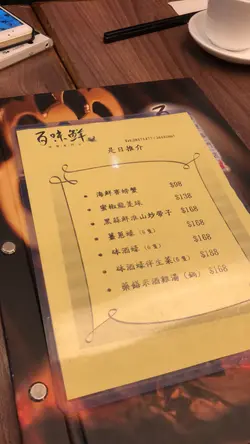 百味鮮
是日推介
• 海鮮軍艦蟹 $98
• 蜜椒龍躉球 $138
• 黑蒜鮮淮山炒帶子 $168
• 薑蔥蠔 (6隻) $168
• 砵酒蠔 (6隻) $168
• 砵酒蠔伴生菜(6隻) $168
• 藥膳米酒雞湯 (鍋) $168